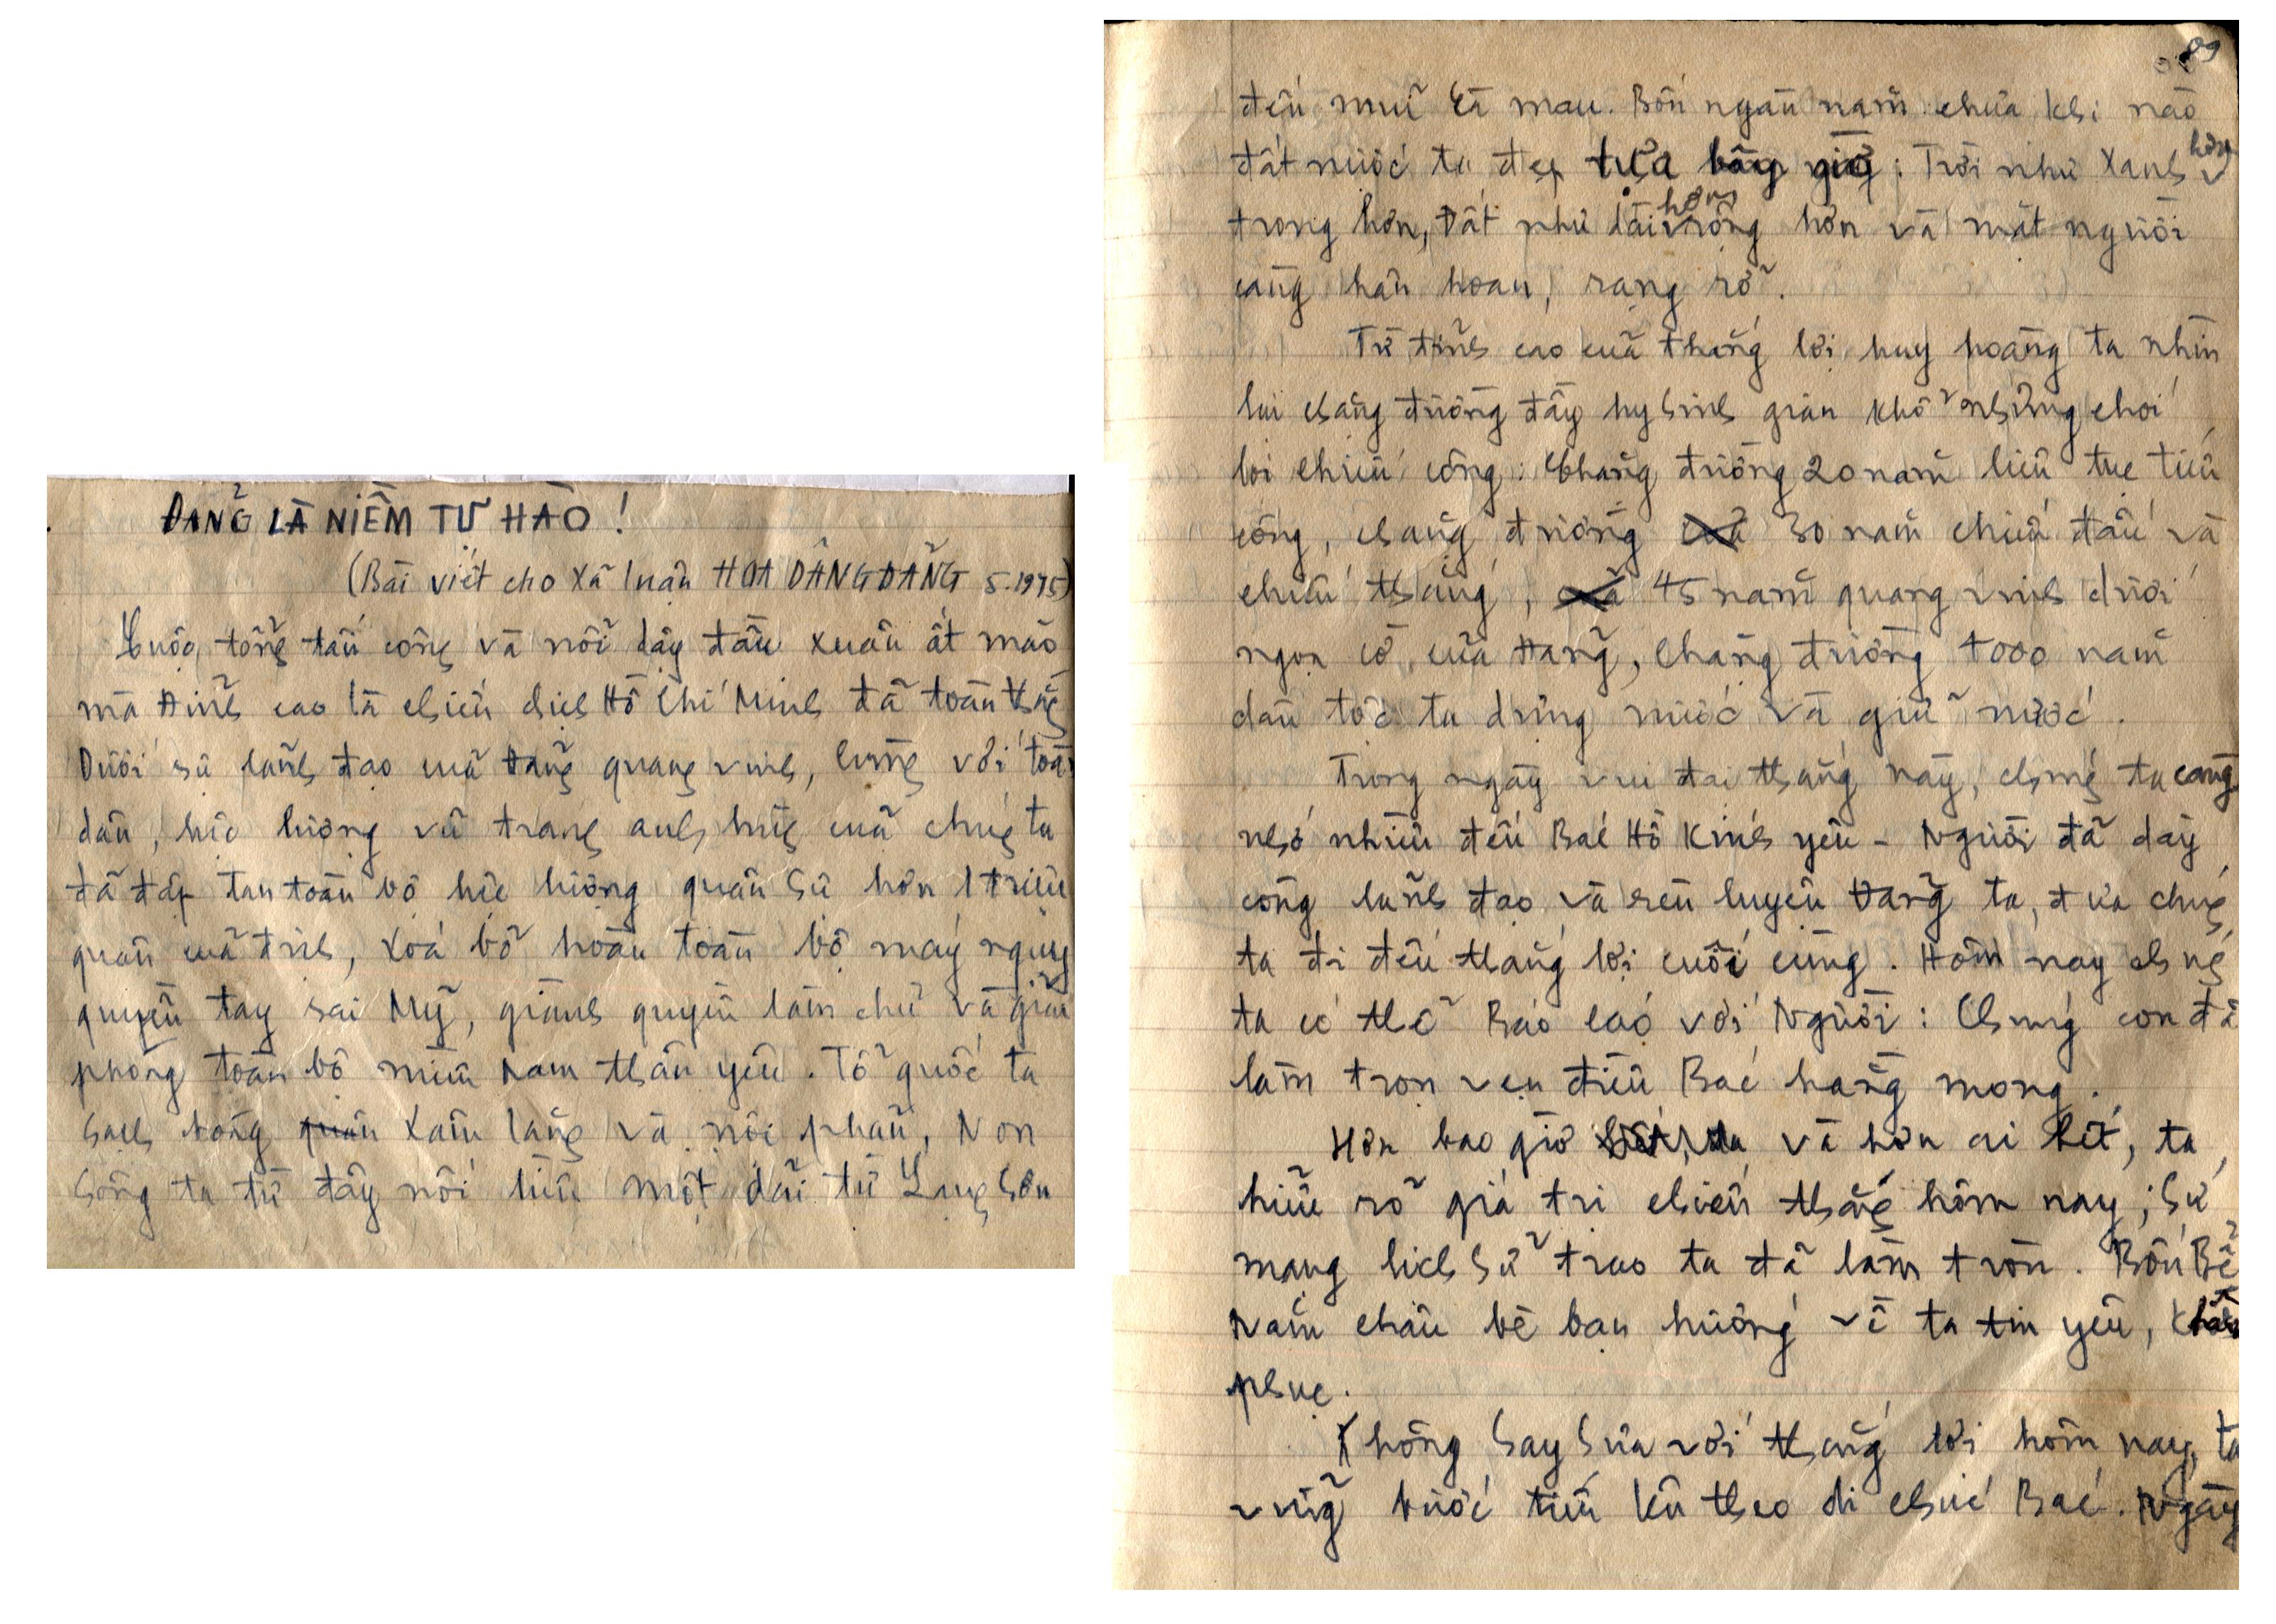 ĐẢNG LÀ NIỀM TỰ HÀO !
(Bài viết cho xã luận HOA DÂNG ĐẢNG 5.1975)
Cuộc tổng tấn công và nổi dậy đầu xuân ất mão
mà đỉnh cao là chiến dịch Hồ Chí Minh đã toàn thắng
Dưới sự lãnh đạo của Đảng quang vinh, cùng với toàn
dân, lực lượng vũ trang anh hùng của chúng ta
đã đập tan toàn bộ lực lượng quân sự hơn 1 triệu
quân của địch, xoá bỏ hoàn toàn bộ máy nguỵ
quyền tay sai Mỹ, giành quyền làm chủ và giải
phóng toàn bộ miền Nam thân yêu. Tổ quốc ta
sạch bóng quân xâm lăng và nội phản, Non
sông ta từ đây nối liền một dải từ Lạng Sơn
89
đến mũi Cà mau. Bốn ngàn năm chưa khi nào
đất nước ta đẹp tựa bây giờ: Trời như xanh hơn
trong hơn, Đất như dài hơn rộng hơn và mặt người
càng hân hoan, rạng rỡ.
Từ đỉnh cao của thắng lợi huy hoàng ta nhìn
lui chặng đường đầy hy sinh gian khổ những chói
lọi chiến công: Chặng đường 20 năm liên tục tiến
công, chặng đường 30 năm chiến đấu và
chiến thắng, 45 năm quang vinh dưới
ngọn cờ của Đảng, Chặng đường 4000 năm
dân tộc ta dựng nước và giữ nước.
Trong ngày vui đại thắng này, chúng ta càng
nhớ nhiều đến Bác Hồ Kính yêu - Người đã dày
công lãnh đạo và rèn luyện Đảng ta, đưa chúng
ta đi đến thắng lợi cuối cùng. Hôm nay chúng
ta có thể Báo cáo với Người: Chúng con đã
làm trọn vẹn điều Bác hằng mong.
Hơn bao giờ và hơn ai hết, ta
hiểu rõ giá trị chiến thắng hôm nay; Sứ
mạng lịch sử trao ta đã làm tròn. Bốn Bể
Năm châu bè bạn hướng về ta tin yêu, Khâm
phục.
Không say sưa với thắng lợi hôm nay, ta
vững bước tiến lên theo di chúc Bác. Ngày